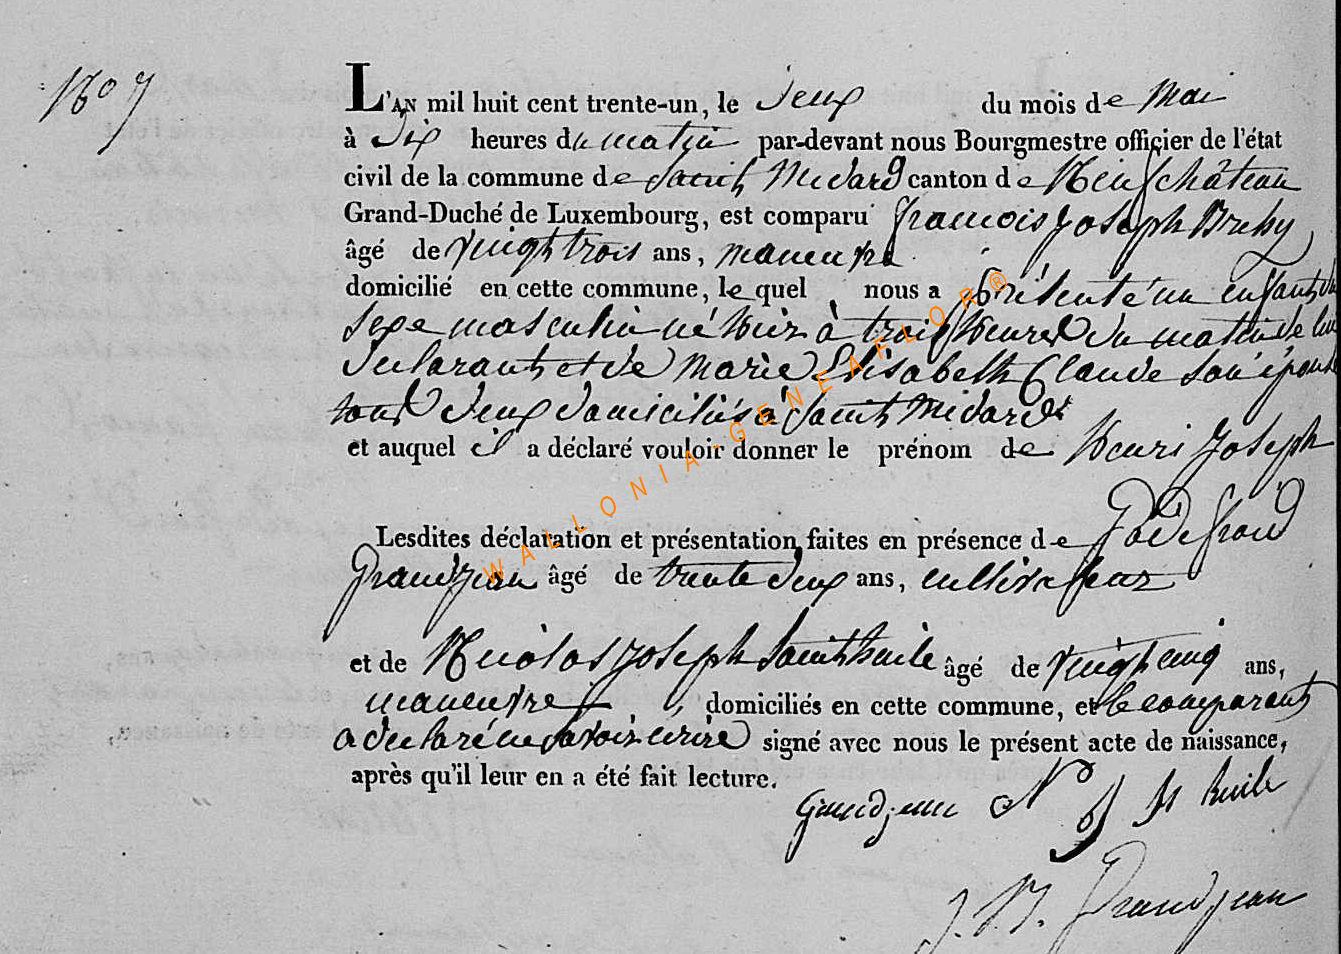 N° 7
L'AN mil huit cent trente-un, le deux du mois de Mai
à dix heures du matin par-devant nous Bourgmestre officier de l'état
civil de la commune de Saint Médard canton de Neufchâteau
Grand-Duché de Luxembourg, est comparu François Joseph
âgé de vingt trois ans, maneuvre
domicilié en cette commune, le quel nous a présenté un enfant du
sexe masculin né hier à trois heures du matin de lui
déclarant et de Marie Elisabeth Claude son épouse
tous deux domiciliés à Saint Médard
et auquel il a déclaré vouloir donner le prénom de Henri Joseph
Lesdites déclaration et présentation faites en présence de Godefroid
Grandjean âgé de trente deux ans, cultivateur
et de Nicolas Joseph Sainthuile âgé de vingt cinq ans,
maneuvre, domiciliés en cette commune, et le comparant
a déclaré ne savoir écrire signé avec nous le présent acte de naissance,
après qu'il leur en a été fait lecture.
Grandjean N J St huile
Grandjean
WALLONIA-GENEAFLOR®